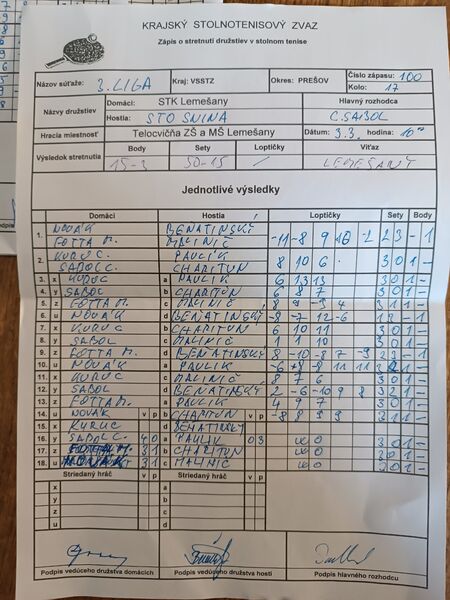 KRAJSKÝ STOLNOTENISOVÝ ZVAZ
Zápis o stretnutí družstiev v stolnom tenise
Názov súťaže: 3. LIGA Kraj: VSSTZ Okres: PREŠOV Číslo zápasu: 100
Kolo: 17
Názvy družstiev Domáci: STK Lemešany Hlavný rozhodca
Hostia: STO SNINA C. SABOL
Hracia miestnosť Telocvičňa ZŠ a MŠ Lemešany Dátum: 3.3. hodina: 10
Výsledok stretnutia Body Sety Loptičky Víťaz
15-3 50-15 LEMEŠANY
Jednotlivé výsledky
Domáci Hostia Loptičky Sety Body
1. NOVÁK BENATINSKÝ
FOTTA M. MALINIČ -11 -8 9 10 -2 2 3 - 1
2. KURUC. PAULIK
SABOL C. CHARITUN 8 10 6 3 0 1 -
3. x KURUC a PAULIK 6 13 13 3 0 1 -
4. y SABOL b CHARITUN 6 8 7 3 0 1 -
5. z FOTTA M. c MALINIČ 8 9 -3 4 3 1 1 -
6. u NOVÁK d BENATINSKÝ -8 -7 12 -6
7. x KURUC b CHARITUN 6 10 11 3 0 1 -
8. y SABOL c MALINIČ 1 1 10 3 0 1 -
9. z FOTTA M. d BENATINSKÝ 8 -10 -8 7 -9
10. u NOVÁK a PAULIK
11. x KURUC c MALINIČ 8 7 6 3 0 1 -
12. y SABOL d BENATINSKÝ 2 -6 -10 9 8 3 2 1 -
13. z FOTTA M. a PAULIK 4 9 7 3 0 1 -
14. u NOVÁK v p b CHARITUN v p -8 8 9 9
15. x KURUC d BENATINSKÝ
16. y SABOL C. 4 0 a PAULIK 0 3 WO 3 0 1 -
17. z 3 1 b CHARITUN WO 3 0 1 -
18. u 3 1 c MALINIČ WO 3 0 1 -
Striedaný hráč v p Striedaný hráč v p
x a
y b
z c
u d
Podpis vedúceho družstva domácich Podpis vedúceho družstva hostí Podpis hlavného rozhodcu